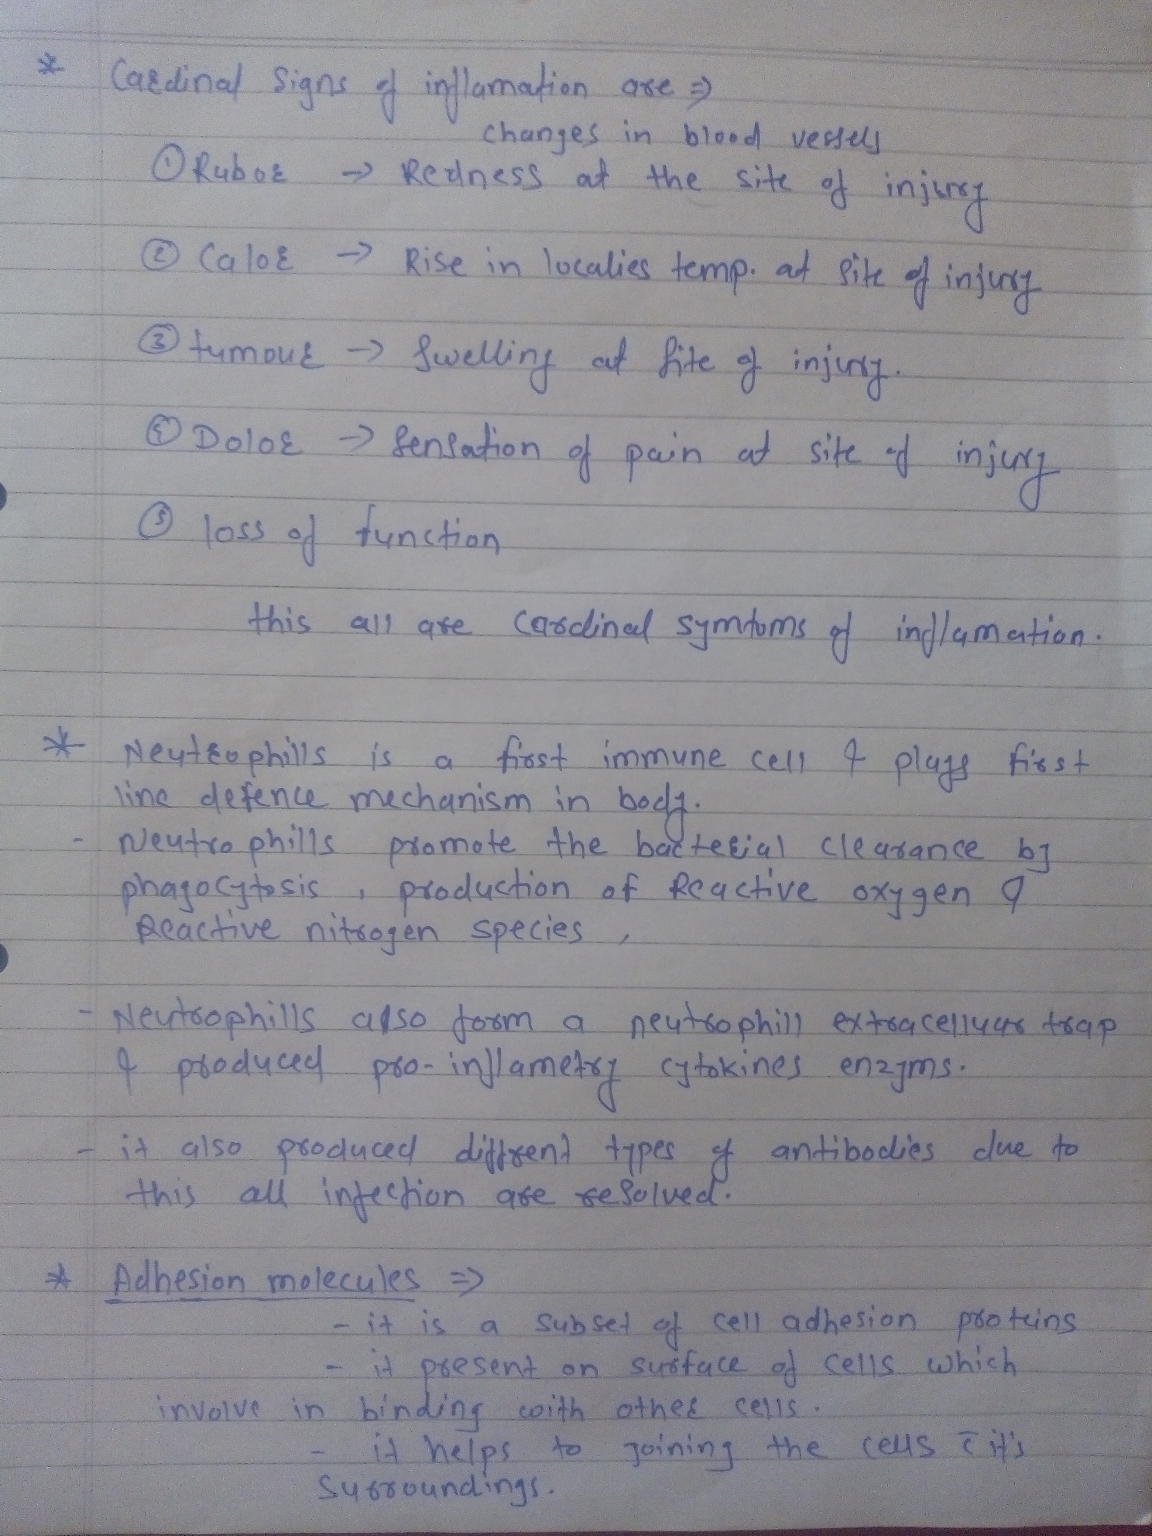 * Cardinal signs of inflamation are ⇒
changes in blood vessels
① Rubor → Redness at the site of injury
② Calor → Rise in localies temp. at site of injury
③ tumour → swelling at site of injury.
④ Dolor → Sensation of pain at site of injury
⑤ loss of function
this all are cardinal symtoms of inflamation.
* Neutrophills is a first immune cell & plays first
line defence mechanism in body.
- Neutrophills promote the bacterial clearance by
phagocytosis , production of Reactive oxygen &
Reactive nitrogen species ,
- Neutrophills also form a neutrophill extracelluar trap
& produced pro-inflametry cytokines enzyms.
- it also produced diffrent types of antibodies due to
this all infection are resolved.
* Adhesion molecules ⇒
- it is a subset of cell adhesion proteins
- it present on surface of cells which
involve in binding with other cells.
- it helps to joining the cells c̄ it's
surroundings.